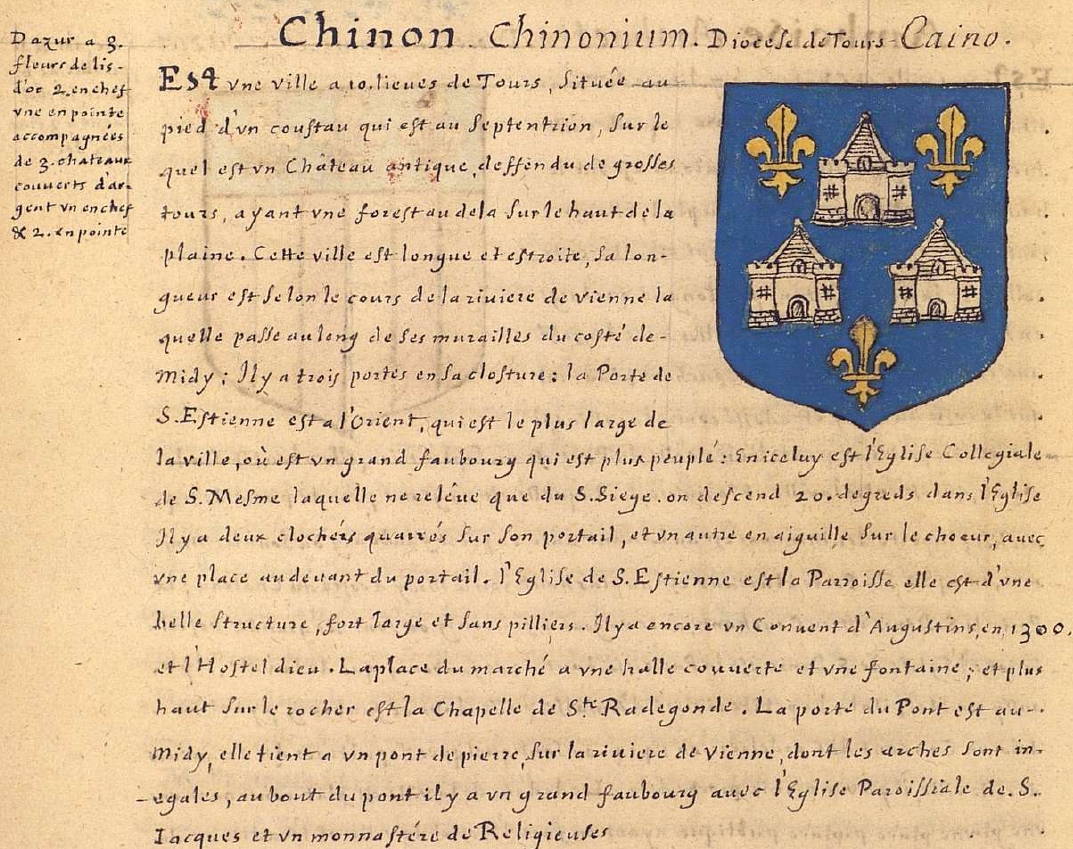 Chinon. Chinonium. Diocese de Tours Caino.
D'azur a 3.
fleurs de lis
d'or 2. en chef
vne en pointe
accompagnées
de 3. chateaux
couverts d'ar-
gent vn en chef
& 2. en pointe
Est vne ville a 10. lieues de Tours, Située au
pied d'vn coustau qui est au Septentrion, Sur le
quel est vn Château antique, deffendu de grosses
tours, ayant vne forest au dela Sur le haut de la
plaine. Cette ville est longue et estroite, Sa lon-
gueur est Selon le cours de la riviere de vienne la
quelle passe au long de Ses murailles du costé de-
Midy: Il y a trois portes en Sa closture: la Porte de
S. Estienne est a l'Orient, qui est le plus large de
la ville, où est vn grand faubourg qui est plus peuplé: En iceluy est l'Eglise Collegiale
de S. Mesme laquelle ne reléve que du S. Siege. on descend 20. degreds dans l'Eglise
Il y a deux clochérs quarrés Sur Son portail, et vn autre en aiguille Sur le choeur, avec
vne place au devant du portail. l'Eglise de S. Estienne est la Parroisse elle est d'vne
belle Structure, fort large et Sans pilliers. Il y a encore vn Convent d'Augustins, en 1300.
et l'Hostel dieu. La place du marché a vne halle couverte et vne fontaine; et plus
haut Sur le rocher est la Chapelle de Ste Radegonde. La porte du Pont est au-
Midy, elle tient a vn pont de pierre, Sur la riviere de Vienne, dont les arches Sont in-
egales, au bout du pont il y a vn grand faubourg avec l'Eglise Paroissiale de. S.
Iacques et vn monnastére de Religieuses